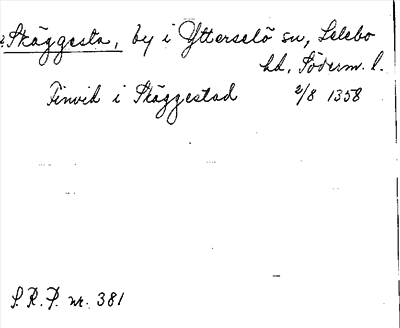 Skäggesta, by i Ytterselö sn, Selebo
hd, Söderm. l.
Finvid i Skäggestad 2/8 1358
S.R.P. nr. 381